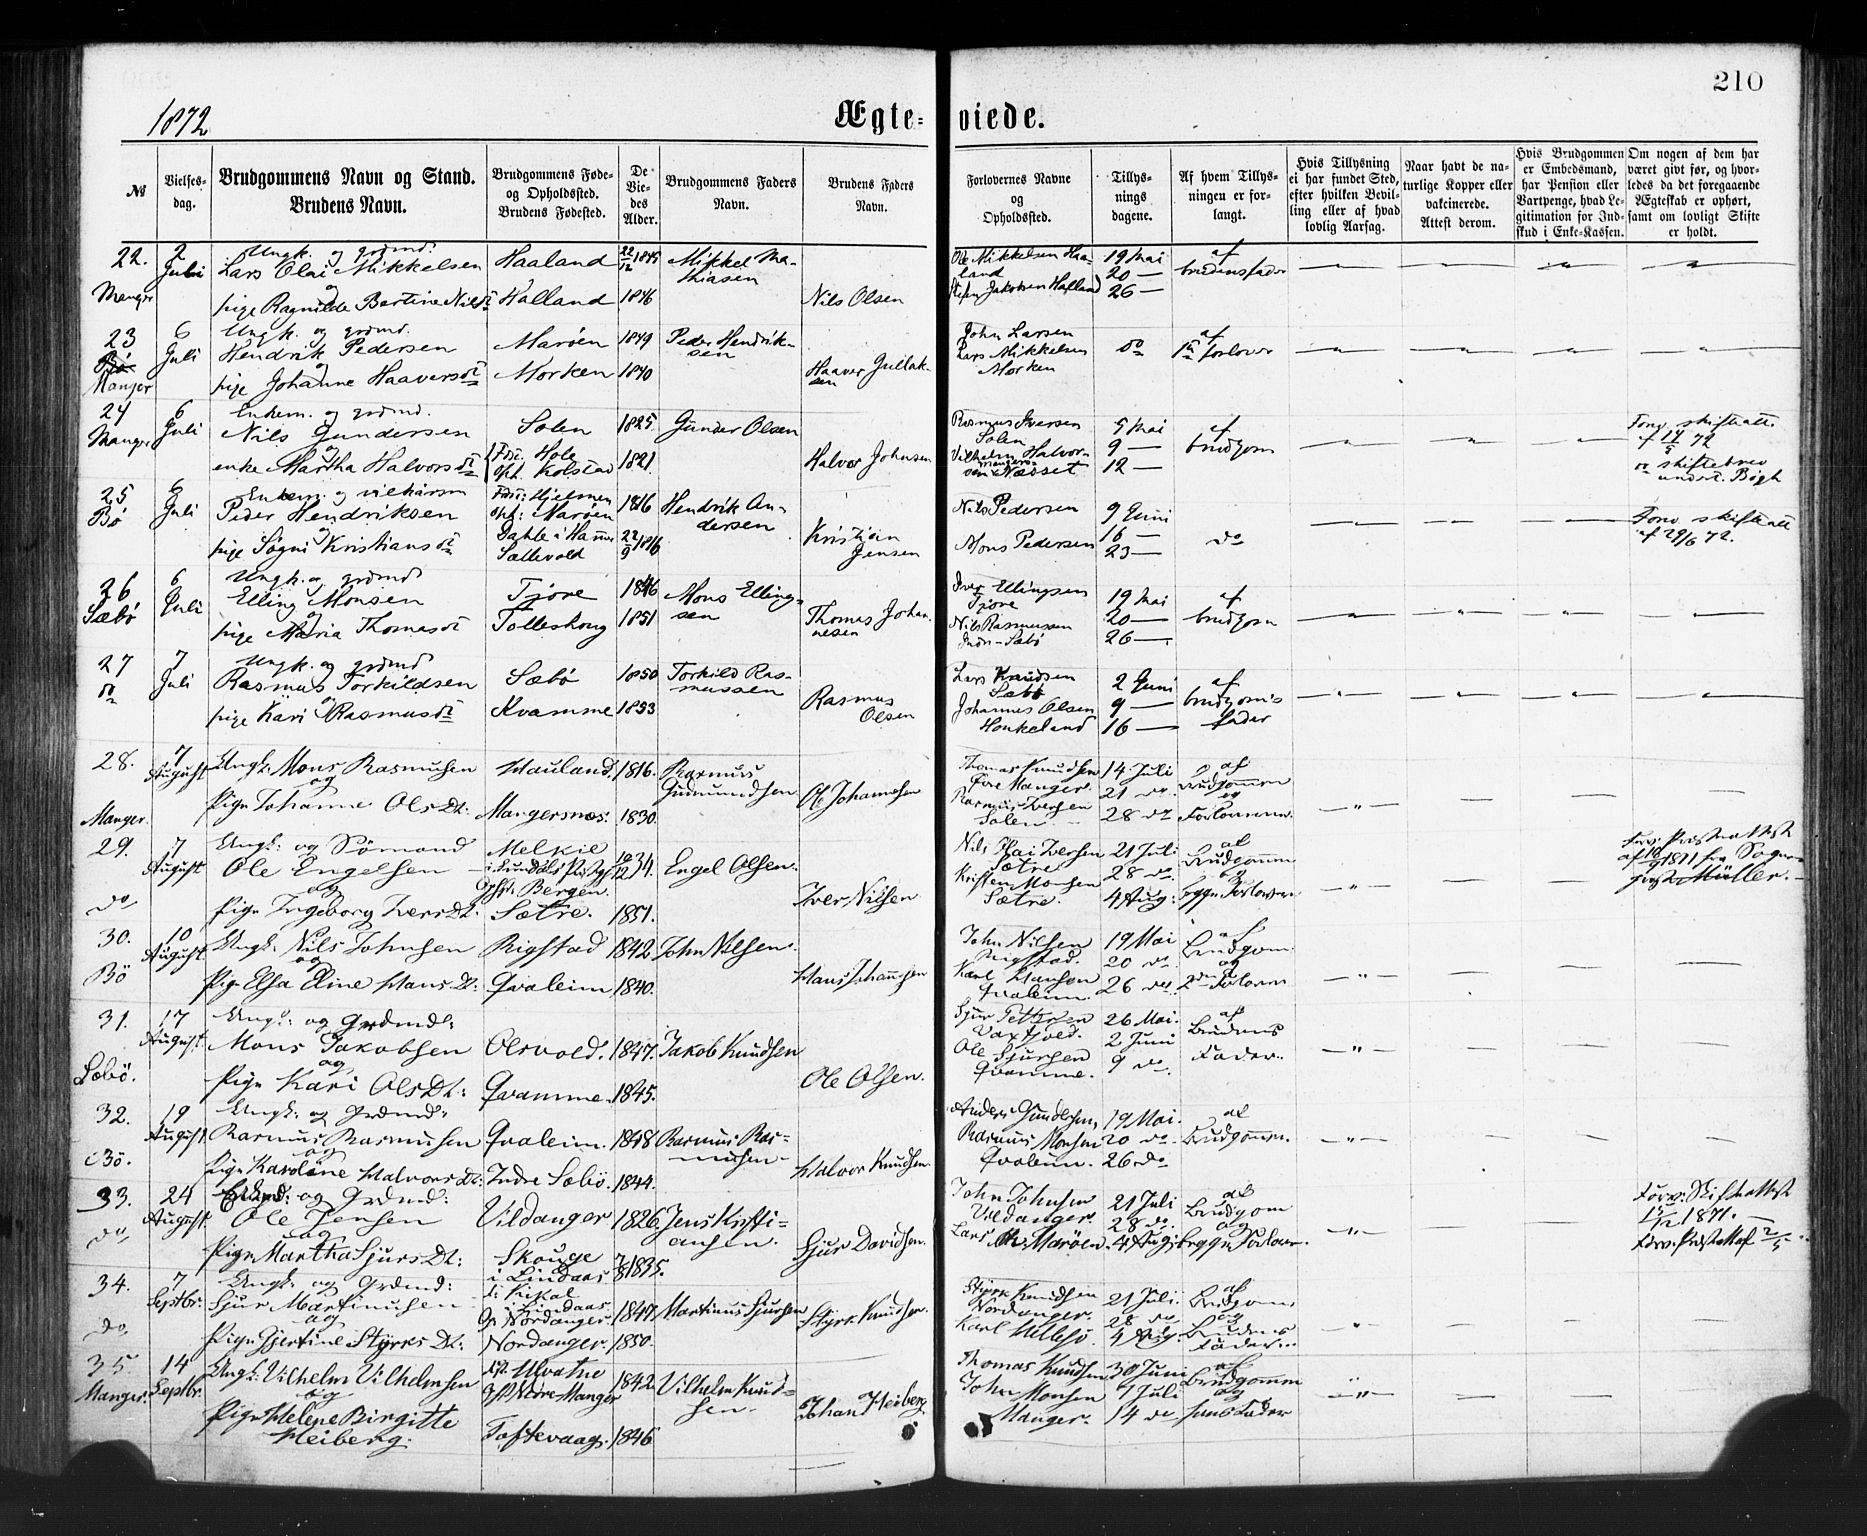 210
1872
Ægte- viede.
№
Vielses-
dag.
Brudgommens Navn og Stand.
Brudens Navn.
Brudgommens Føde-
og Opholdssted.
Brudens Fødested.
De
Vie-
des
Alder.
Brudgommens Faders
Navn.
Brudens Faders
Navn.
Forlovernes Navne
og
Opholdssted.
Tillys-
nings
dagene.
Af hvem Tillys-
ningen er for-
langt.
Hvis Tillysning
ei har fundet Sted,
efter hvilken Bevil-
ling eller af hvad
lovlig Aarsag.
Naar havt de na-
turlige Kopper eller
vakcinerede.
Attest derom.
Hvis Brudgommen
er Embedsmand,
har Pension eller
Vartpenge, hvad Le-
gitimation for Ind-
skud i Enke-Kassen.
Om nogen af dem har
været givt før, og hvor-
ledes da det foregaaende
Ægteskab er ophørt,
samt om lovligt Skifte
er holdt.
22. Manger
2 Juli
Ungk. og grdmd.
Lars Olai Mikkelsen
og
pige Ragnilde Bertine Nilsdt
Haaland
Halland
22/12 1845
1846
Mikkel Ma-
thiasen
Nils Olsen
Ole Mikkelsen Haa-
land
Stefen Jakobsen Hafland
19 Mai
20 —
26 —
af
brudensfader
23 Manger
6 Juli
Ungk. og grdmd.
Hendrik Pedersen
og
pige Johanne Haaversdt
Marøen
Morken
1849
1840
Peder Hendrik-
sen
Haaver Gullak-
sen
John Larsen
Lars Mikkelsen
Morken
do
af
1ste forlover
24 Manger
6 Juli
Enkem. og grdmd.
Nils Gundersen
og
enke Martha Halvorsdt
Solen
Fdt: Hole
Oph. Kolstad
1825
1821
Gunder Olsen
Halvor Johnsen
Rasmus Iversen
Solen
Vilhelm Halvor-
sen Mangers-
Næsset
5 Mai
9 —
12 —
af
brudgom
Forev. skifteatt.
af 17/5 72
og skiftebrev
undrt. Bøgh
25 Bø
6 Juli
Enkem. og vilkårsm
Peder Hendriksen
og
pige Søgni Kristiansdt
Fdt: Hjelmen
oph: Marøen
Dahle i Hammer
Sællevold
1816
22/9 1816
Hendrik An-
dersen
Kristian
Jensen
Nils Pedersen
Mons Pedersen
9 Juni
16 —
23 —
do
Forev. skifteatt
af 29/6 72.
26 Sæbø
6 Juli
Ungk. og grdmd
Elling Monsen
og
pige Maria Thomasdt
Tjore
Tolleskong
1846
1851
Mons Elling-
sen
Thomas Johan-
nesen
Iver Ellingsen
Tjore
Nils Rasmussen
Indre-Sæbø
19 Mai
20 —
26 —
af
brudgom
27 do
7 Juli
Ungk. og grdmd
Rasmus Torkildsen
og
pige Kari Rasmusdt
Sæbø
Kvamme
1850
1853
Torkild Ras-
mussen
Rasmus
Olsen
Lars Knudsen
Sæbø
Johannes Olsen
Honkeland
2 Juni
9 —
16 —
af
brudgoms
fader
28. Manger.
7 August
Ungk: Mons Rasmusen
og
Pige Johanne OlsDt:
Hauland.
Mangersnæs:
1816.
1830.
Rasmus
Gudmundsen
Ole Johannesen
Thomas Knudsen
Øvre Manger.
Rasmus Iversen
Solen
14 Juli
21 do.
28 do
af
Brudgommen
og
Forloverne.
29. do
7 August
Ungk: og Sømand
Ole Engelsen
og
Pige Ingeborg IversDt:
Melkie
i Lindaas Præstgj
Oph: Bergen.
Sætre.
10/12 34.
1851.
Engel Olsen.
Iver Nilsen
Nils Olai Iversen
Sætre
Kristen Monsen
Sætre.
21 Juli
28 do.
4 Aug:
af
Brudgomm
og
begge Forlovere
Forev. Præsteattest
af 10/9 1871 fra Sogne-
præst Müller.
30. Bö
10 August
Ungk: Nils Johnsen
og
Pige Elsa Eline HansDt:
Rigstad
Qvaleim
1842
1840.
John Nilsen.
Hans Johannesen
John Nilsen
Rigstad.
Karl Hansen
Qvaleim.
19 Mai
20 do
26 do
af
Brudgom.
og
2den Forlover
31. Sæbö.
17 August
Ungk: og Grdmd:
Mons Jakobsen
og
Pige Kari OlsDt:
Olsvold.
Qvamme.
1847.
1845.
Jakob Knudsen
Ole Olsen.
Sjur Pettersen
Vaxtvold.
Ole Sjursen
Qvamme.
26 Mai.
2 Juni
9 do.
af
Brudens
Fader.
32. Bö.
19 August
Ungk: og Grdmd:
Rasmus Rasmusen
og
Pige Karoline HalvorsDt:
Qvaleim.
Indre Sæbö.
1848
1844.
Rasmus Ras-
musen
Halvor Knudsen
Anders Gundersen,
Rasmus Monsen
Qvaleim.
19 Mai.
20 do.
26 do
af
Brudgommen.
33. do
24 August
Enkmd: og Grdmd:
Ole Jensen
og
Pige Martha SjursDt:
Vildanger
Skouge
i Lindaas
1826
1835.
Jens Kristi-
ansen.
Sjur Davidsen.
John Johnsen
Vildanger.
Lars Ch: Marøen
21 Juli
28 do.
4 Aug:
af
Brudgom
og
begge Forlovere.
Forev: Skifteattest
1/12 1871.
Forev: Præsteatt af 2/5
34. do
7 Septbr.
Ungk: og Grdmd:
Sjur Martinusen
og
Pige Gjertine StyrksDt:
f: Kikal
i Lindaas
Op. Nordanger.
Nordanger.
1847
1850.
Martinus Sjursen
Styrk Knudsen.
Styrk Knudsen
Nordanger.
Karl Hillesø
21 Juli.
28 do
4 Aug.
af
Brudgom
og
Brudens
Fader.
35 Manger.
14 Septbr.
Ungk: Vilhelm Vilhelmsen
og
Pige Helene Birgitte
Heiberg.
f: Ulvatne
Op: Nedre Manger
Toftevaag.
1842
1846
Vilhelm Knud-
sen.
Johan Heiberg
Thomas Knudsen
John Monsen
Manger.
30 Juni
7 Juli
14 do
af
Brudgomm
og
hans Fader